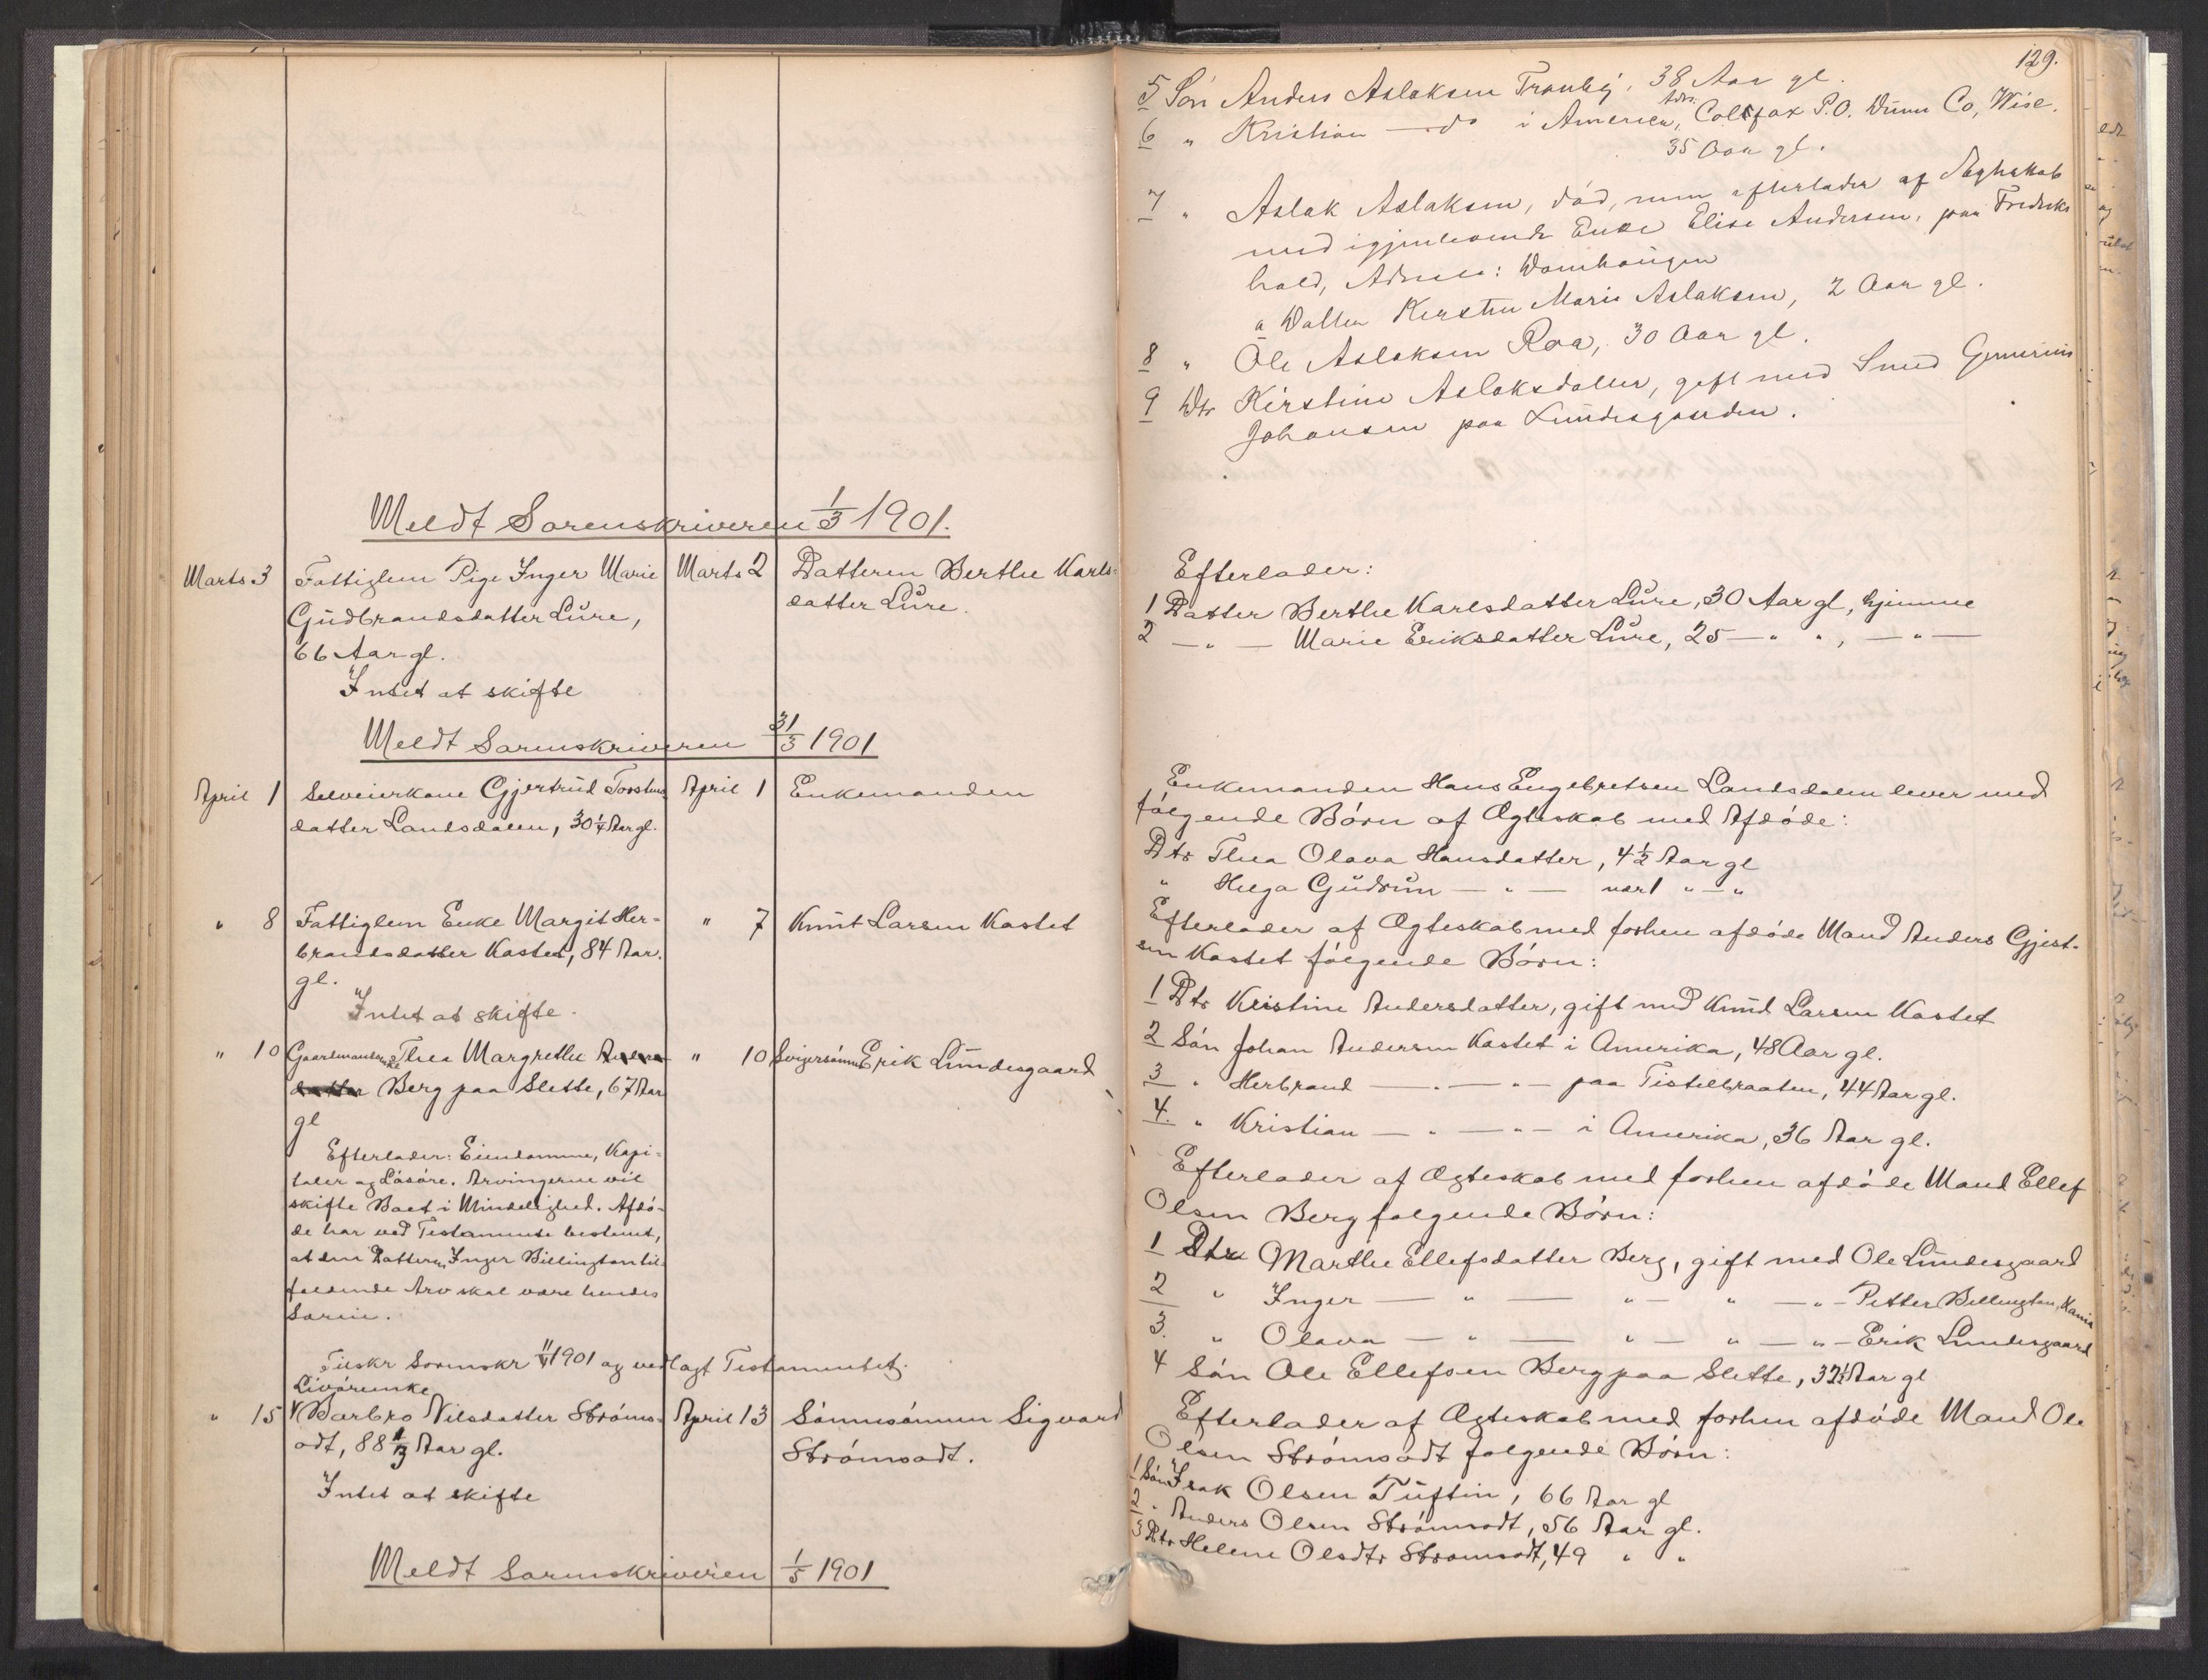 Meldt Sorenskriveren 1/3 1901.
Marts 3 Fattiglem Pige Inger Marie Marts 2 Datteren Berthe Karls-
Gudbrandsdatter Lure, datter Lure.
66 Aar gl.
Intet at skifte
Meldt Sorenskriveren 31/3 1901
April 1 Selveierkone Gjertrud Torstens April 1 Enkemanden
datter Landsdalen, 30 1/4 Aar gl.
" 8 Fattiglem Enke Margit Her- " 7 Knut Larsen Kastet
brandsdatter Kastet, 84 Aar.
gl.
Intet at skifte.
" 10 Thea Margrethe " 10 Svigersønnen Erik Lundesgaard
datter Berg paa Slette, 67 Aar
gl
Efterlader: Eiendomme, Kapi-
taler og Løsøre. Arvingerne vil
skifte Boet i Mindelighed. Afdø-
de har ved Testamente bestemt,
at den Datteren Inger Billington til-
faldende Arv skal være hendes
Særeie.
Tilskr Sorenskr 11/4 1901 og vedlagt Testamentet.
Livørenke
" 15 Barbro Nilsdatter Strøms- April 13 Sønnesønnen Sigvard
odt, 88 1/3 Aar gl. Strømsodt.
Intet at skifte
Meldt Sorenskriveren 1/5 1901
129.
5 Søn Anders Aslaksen Tranby, 38 Aar gl.
6 " Kristian — do i America, Adr. Colfax P.O. Dunn Co, Wisc.
35 Aar gl.
7 " Aslak Aslaksen, død, men efterlader af Ægteskab
med igjenlevende Enke Elise Andersen, paa Fredriks
hald, Adresse: Damhaugen
a Datter Kersten Marie Aslaksen, 2 Aar gl.
8 " Ole Aslaksen Roa, 30 Aar gl.
9 Dtr Kirstine Aslaksdatter, gift med Smed
Johansen paa Lundesgaarden.
Efterlader:
1 Datter Berthe Karlsdatter Lure, 30 Aar gl, hjemme
2 — " — Marie Eriksdatter Lure, 25 — " ", — " —
Enkemanden Hans Engebretsen Landsdalen lever med
følgende Børn af Ægteskab med Afdøde:
Dtr Thea Olava Hansdatter, 4 1/2 Aar gl
" Helga Gudrun — " — nær 1 " — "
Efterlader af Ægteskab med forhen afdøde Mand Anders Gjest-
sen Kastet følgende Børn:
1 Dtr Kristine Andersdatter, gift med Knud Larsen Kastet
2 Søn Johan Andersen Kastet i Amerika, 48 Aar gl.
3 " Herbrand — " — " — paa Tistelbraaten, 44 Aar gl.
4. " Kristian — " — " — i Amerika, 36 Aar gl.
Efterlader af Ægteskab med forhen afdøde Mand Ellef
Olsen Berg følgende Børn:
1 Dtr Marthe Ellefsdatter Berg, gift med Ole Lundesgaard
2 " Inger — " — " — " — " — Petter Billington,
3. " Olava — " — " — " — " — Erik Lundesgaard
4 Søn Ole Ellefsen Berg paa Slette, 32 1/2 Aar gl
Efterlader af Ægteskab med forhen afdøde Mand Ole
Olsen Strømsodt følgende Børn:
1 Søn Isak Olsen Tuftin, 66 Aar gl
2 " Anders Olsen Strømsodt, 56 Aar gl.
3 Dtr Helene Olsdtr Strømsodt, 49 " "